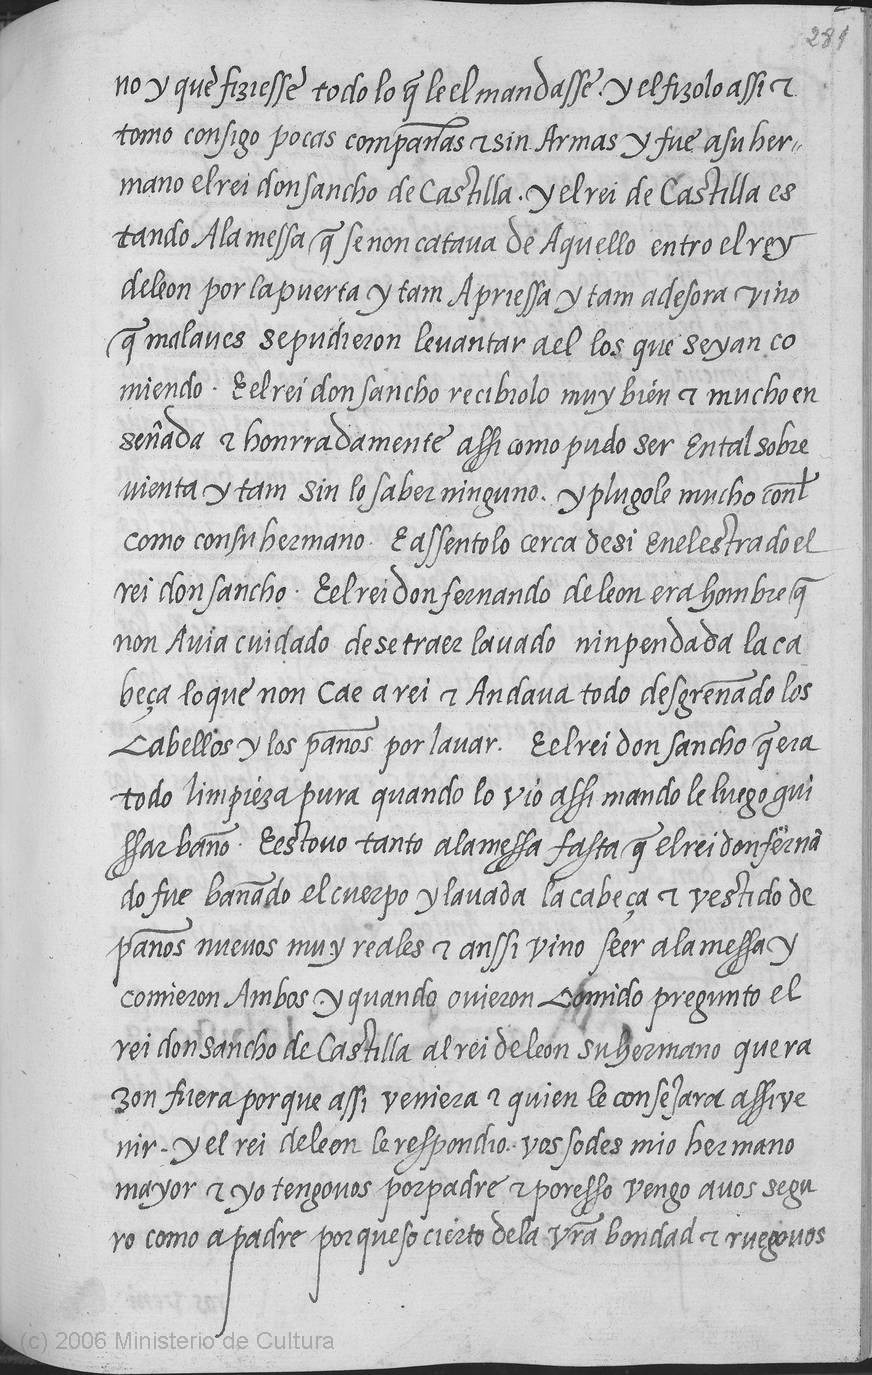 281
no y que fiziesse todo lo q̃ le el mandasse. y el fizolo assi ⁊
tomo consigo pocas compañas ⁊ sin Armas y fue a su her-
mano el rei don sancho de Castilla. y el rei de Castilla es
tando A la messa q̃ se non cataua de Aquello entro el rey
de leon por la puerta y tam Apriessa y tam adesora vino
q̃ malaues se pudieron leuantar a el los que seyan co
miendo. E el rei don sancho recibiolo muy bien ⁊ mucho en
señada ⁊ honrradamente assi como pudo ser En tal sobre
uienta y tam sin lo saber ninguno. y plugole mucho con l
como con su hermano. E assentolo cerca de si En el estrado el
rei don sancho. E el rei don fernando de leon era hombre q̃
non Auia cuidado de se traer lauado nin pendada la ca
beça lo que non Cae a rei ⁊ Andaua todo desgreñado los
Cabellos y los paños por lauar. E el rei don sancho q̃ era
todo limpieza pura quando lo vio assi mando le luego gui
ssar baño. E estouo tanto a la messa fasta q̃ el rei don fernã
do fue bañado el cuerpo y lauada la cabeça ⁊ vestido de
paños nueuos muy reales ⁊ anssi vino seer a la messa y
comieron Ambos. y quando ouieron Comido pregunto el
rei don sancho de Castilla al rei de leon su hermano que ra
zon fuera por que assi veniera ⁊ quien le consejara assi ve
nir. y el rei de leon le respondio. vos sodes mio hermano
mayor ⁊ yo tengo uos por padre ⁊ por esso vengo a uos segu
ro como a padre por que so cierto de la vr̃a bondad ⁊ ruego uos
(c) 2006 Ministerio de Cultura